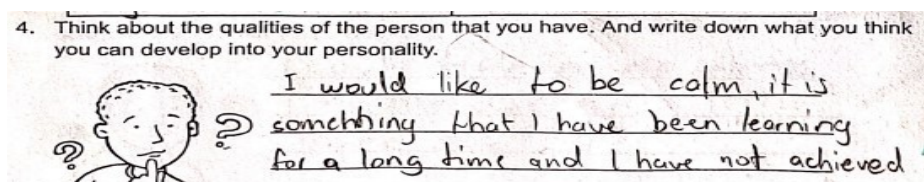 4. Think about the qualities of the person that you have. And write down what you think
you can develop into your personality.
I would like to be calm, it is
somehhing that I have been learning
for a long time and I have not achieved
? ?